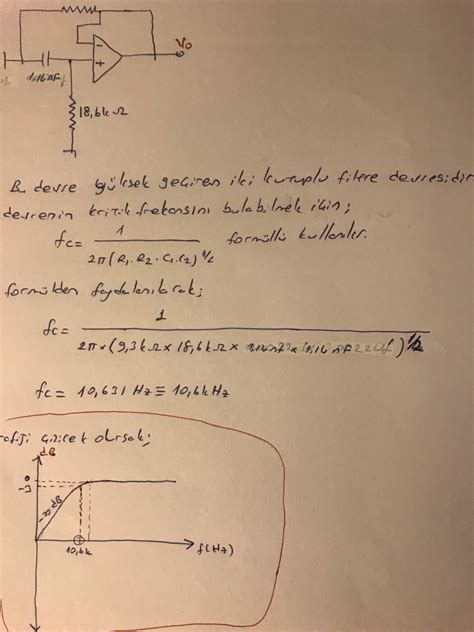 Vo
18,6k Ω
Bu devre yüksek geçiren iki kutuplu filtre devresidir
devrenin kritik frekansını bulabilmek için;
fc= 1 / 2π(R1.R2.C1.C2)^1/2 formülü kullanılır.
formülden faydalanılarak;
fc= 1 / 2π×(9,3kΩ×18,6kΩ× )^1/2
fc= 10,631 Hz ≅ 10,6kHz
çizicek olursak;
dB
0
-3
10,6k
f(Hz)